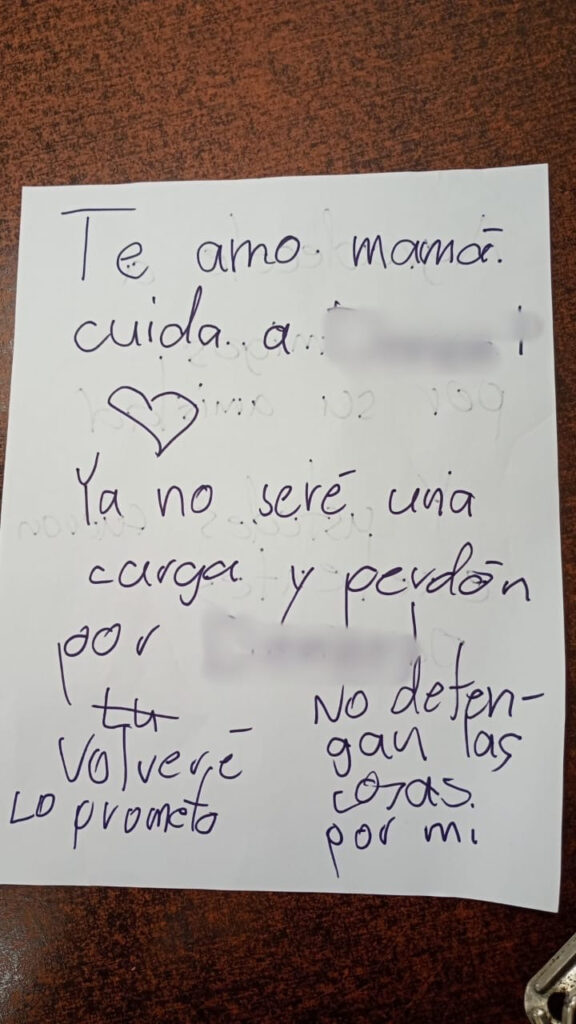 Te amo mamá
cuida a
Ya no seré una
carga y perdón
por
tu
Volveré
Lo prometo
No deten-
gan las
cosas
por mi